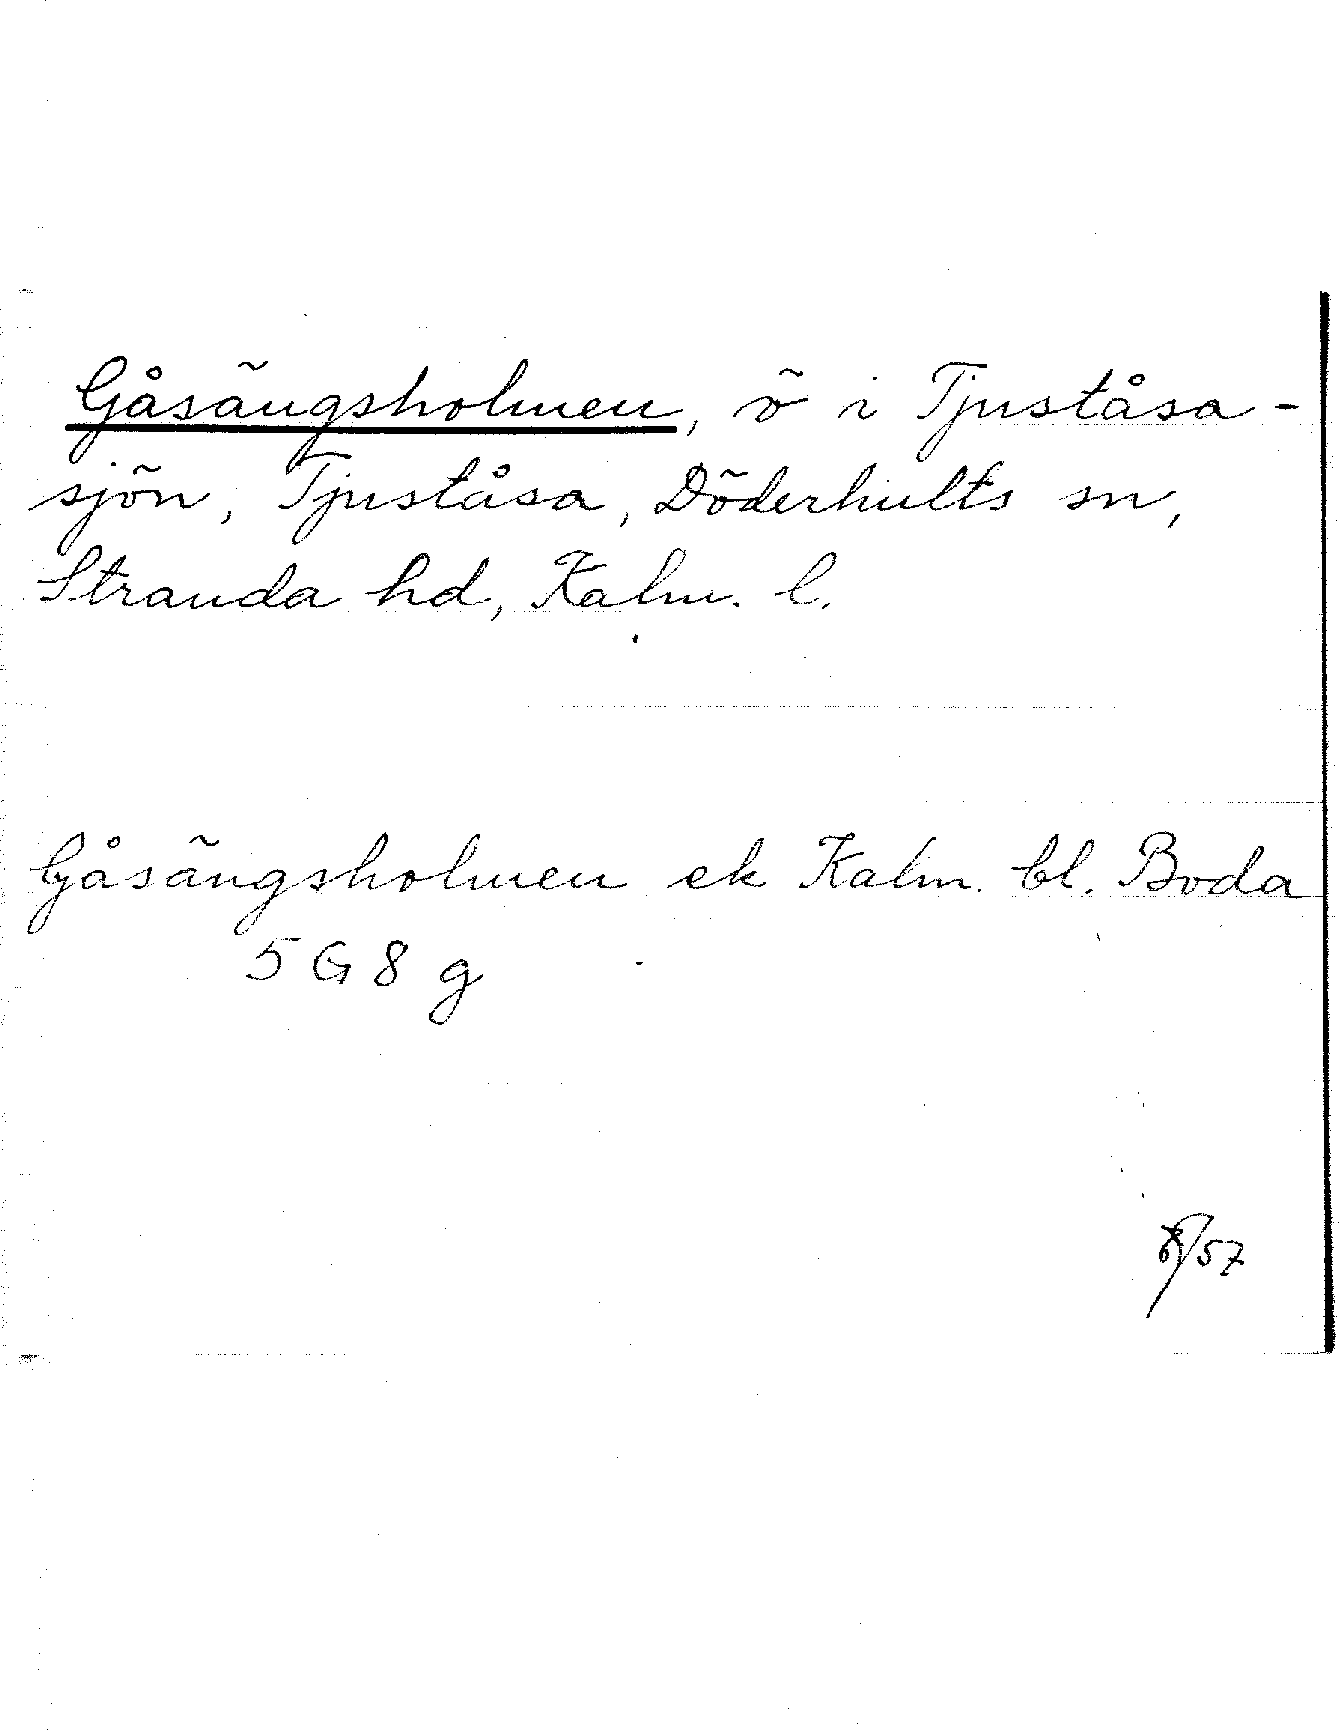 Gåsängsholmen, ö i Tjuståsa-
sjön, Tjuståsa, Döderhults sn,
Stranda hd, Kalm. l.
Gåsängsholmen ek Kalm. bl. Boda
5 G 8 g
/57